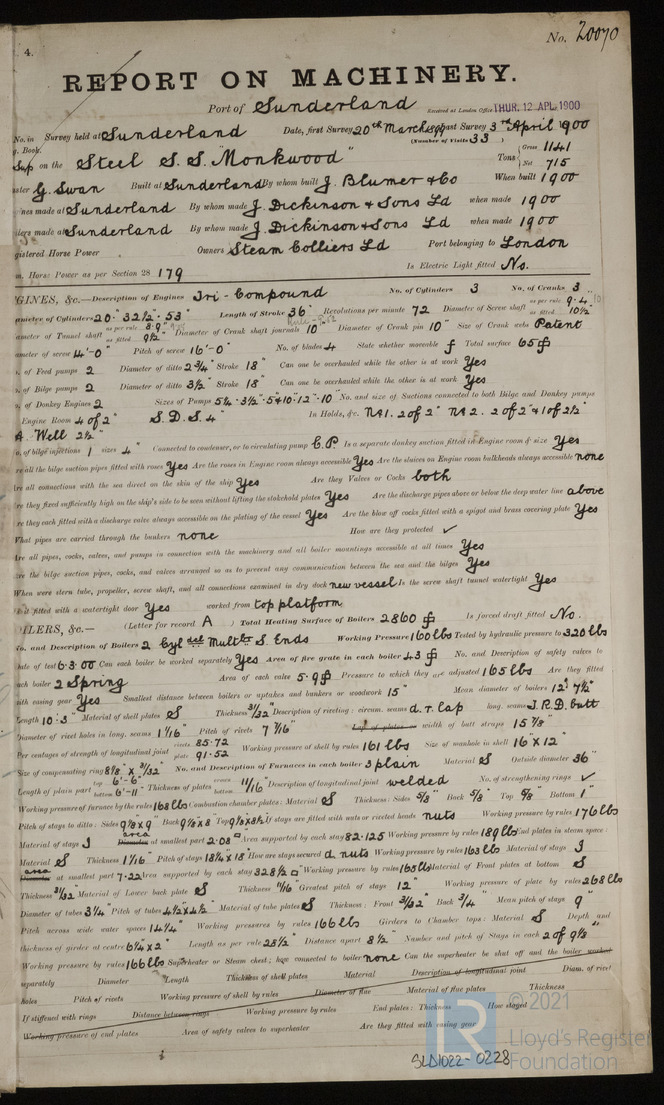 4.
No. 20070
REPORT ON MACHINERY.
Port of Sunderland Received at London Office THUR. 12 APL 1900
No. in Survey held at Sunderland Date, first Survey 20th March 1899 Last Survey 3rd April 1900
Book. (Number of Visits 33)
on the Steel S.S. "Monkwood" Tons Gross 1141 Net 715
G. Swan Built at Sunderland By whom built J. Blumer & Co When built 1900
made at Sunderland By whom made J. Dickinson & Sons Ld when made 1900
made at Sunderland By whom made J. Dickinson & Sons Ld when made 1900
Horse Power Owners Steam Colliers Ld Port belonging to London
Horse Power as per Section 28 179 Is Electric Light fitted No.
GINES, &c.—Description of Engines Tri-Compound No. of Cylinders 3 No. of Cranks 3
of Cylinders 20" 32½" 53" Length of Stroke 36" Revolutions per minute 72 Diameter of Screw shaft as per rule 9.4 as fitted 10½"
of Tunnel shaft as per rule 8.9" as fitted 9½" Diameter of Crank shaft journals 10" Diameter of Crank pin 10" Size of Crank webs Patent
of screw 14'-0" Pitch of screw 16'-0" No. of blades 4 State whether moveable Total surface 65
of Feed pumps 2 Diameter of ditto 2¾" Stroke 18" Can one be overhauled while the other is at work Yes
of Bilge pumps 2 Diameter of ditto 3½" Stroke 18" Can one be overhauled while the other is at work Yes
of Donkey Engines 2 Sizes of Pumps No. and size of Suctions connected to both Bilge and Donkey pumps
Engine Room 4 of 2" S.D.S. 4" In Holds, &c. No 1. 2 of 2" No 2. 2 of 2" & 1 of 2½"
A. Well 2½"
of bilge injections 1 sizes 4" Connected to condenser, or to circulating pump C.P. Is a separate donkey suction fitted in Engine room & size Yes
all the bilge suction pipes fitted with roses Yes Are the roses in Engine room always accessible Yes Are the sluices on Engine room bulkheads always accessible none
all connections with the sea direct on the skin of the ship Yes Are they Valves or Cocks both
they fixed sufficiently high on the ship's side to be seen without lifting the stokehold plates Yes Are the discharge pipes above or below the deep water line above
they each fitted with a discharge valve always accessible on the plating of the vessel Yes Are the blow off cocks fitted with a spigot and brass covering plate Yes
What pipes are carried through the bunkers none How are they protected ✓
all pipes, cocks, valves, and pumps in connection with the machinery and all boiler mountings accessible at all times Yes
the bilge suction pipes, cocks, and valves arranged so as to prevent any communication between the sea and the bilges Yes
When were stern tube, propeller, screw shaft, and all connections examined in dry dock new vessel Is the screw shaft tunnel watertight Yes
fitted with a watertight door Yes worked from top platform
OILERS, &c.— (Letter for record A) Total Heating Surface of Boilers 2860 Is forced draft fitted No.
No. and Description of Boilers 2 Cyl Multbr S. Ends Working Pressure 160 lbs Tested by hydraulic pressure to 320 lbs
Date of test 6.3.00 Can each boiler be worked separately Yes Area of fire grate in each boiler 43 No. and Description of safety valves to
each boiler 2 Spring Area of each valve 5.9 Pressure to which they are adjusted 165 lbs Are they fitted
with easing gear Yes Smallest distance between boilers or uptakes and bunkers or woodwork 15" Mean diameter of boilers 12' 7½"
Length 10'.3" Material of shell plates S Thickness 31/32" Description of riveting: circum. seams d.r. lap long. seams T.R.D. butt
Diameter of rivet holes in long. seams 1 1/16" Pitch of rivets 7 7/16" Lap of plates or width of butt straps 15 7/8"
Per centages of strength of longitudinal joint rivets 85.72 plate 91.52 Working pressure of shell by rules 161 lbs Size of manhole in shell 16" x 12"
Size of compensating ring No. and Description of Furnaces in each boiler 3 plain Material S Outside diameter 36"
Length of plain part top 6'-6" bottom 6'-11" Thickness of plates 11/16" Description of longitudinal joint welded No. of strengthening rings ✓
Working pressure of furnace by the rules 168 lbs Combustion chamber plates: Material S Thickness: Sides 5/8" Back 5/8" Top 5/8" Bottom 1"
Pitch of stays to ditto: Sides 9⅛ x 9" Back 9⅛ x 8" Top If stays are fitted with nuts or riveted heads nuts Working pressure by rules 176 lbs
Material of stays Diameter area at smallest part 2.08 Area supported by each stay 82.125 Working pressure by rules 189 lbs End plates in steam space:
Material S Thickness 1 1/16" Pitch of stays 18¼ x 18" How are stays secured d. nuts Working pressure by rules 163 lbs Material of stays
Diameter area at smallest part 7.22 Area supported by each stay 328½ Working pressure by rules 165 lbs Material of Front plates at bottom S
Thickness 31/32" Material of Lower back plate S Thickness 11/16" Greatest pitch of stays 12" Working pressure of plate by rules 268 lbs
Diameter of tubes 3¼" Pitch of tubes 4½ x 4½" Material of tube plates S Thickness: Front 31/32" Back ¾" Mean pitch of stays 9"
Pitch across wide water spaces 14¼" Working pressures by rules 166 lbs Girders to Chamber tops: Material S Depth and
thickness of girder at centre 6¼" x 2" Length as per rule 25½" Distance apart 8½" Number and pitch of Stays in each 2 of 9⅛"
Working pressure by rules 166 lbs Superheater or Steam chest; how connected to boiler none Can the superheater be shut off and the boiler worked
separately Diameter Length Thickness of shell plates Material Description of longitudinal joint Diam. of rivet
holes Pitch of rivets Working pressure of shell by rules Diameter of flue Material of flue plates Thickness
If stiffened with rings Distance between rings Working pressure by rules End plates: Thickness How stayed
Working pressure of end plates Area of safety valves to superheater Are they fitted with easing gear
SLD1022-0228
LR
© 2021
Lloyd's Register
Foundation